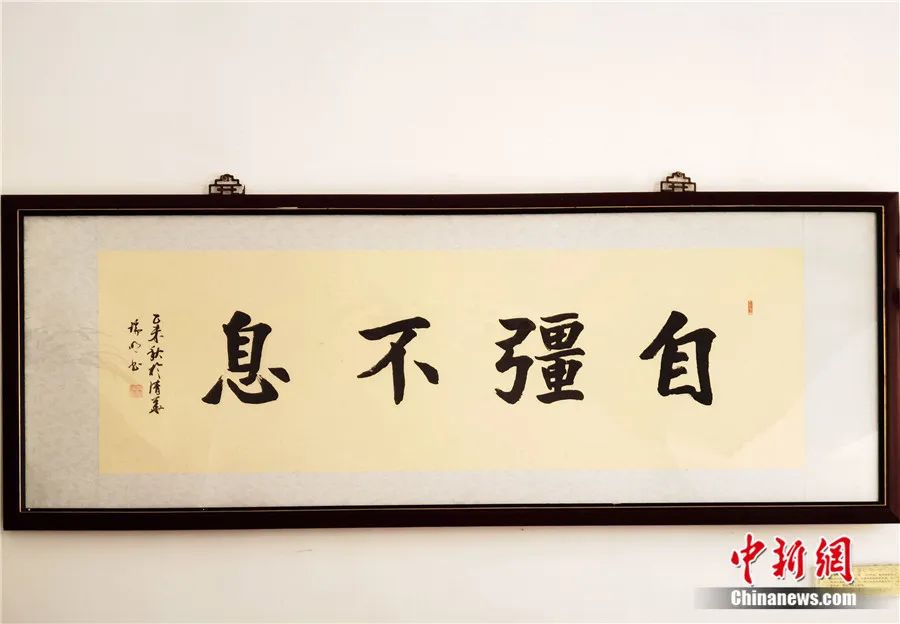 自彊不息
乙未秋於清華
中新網
Chinanews.com